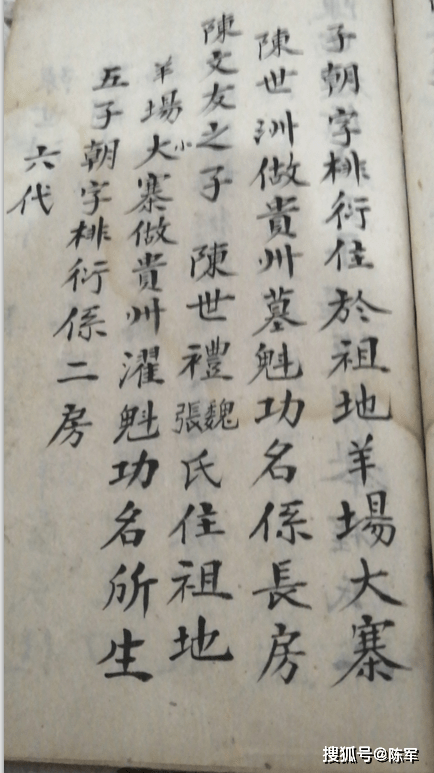 子朝字排衍住於祖地羊場大寨
陳世洲做貴州墓魁功名係長房
陳文友之子 陳世禮魏張氏住祖地
羊場大小寨做貴州濯魁功名所生
五子朝字排衍係二房
六代
搜狐号@陈军